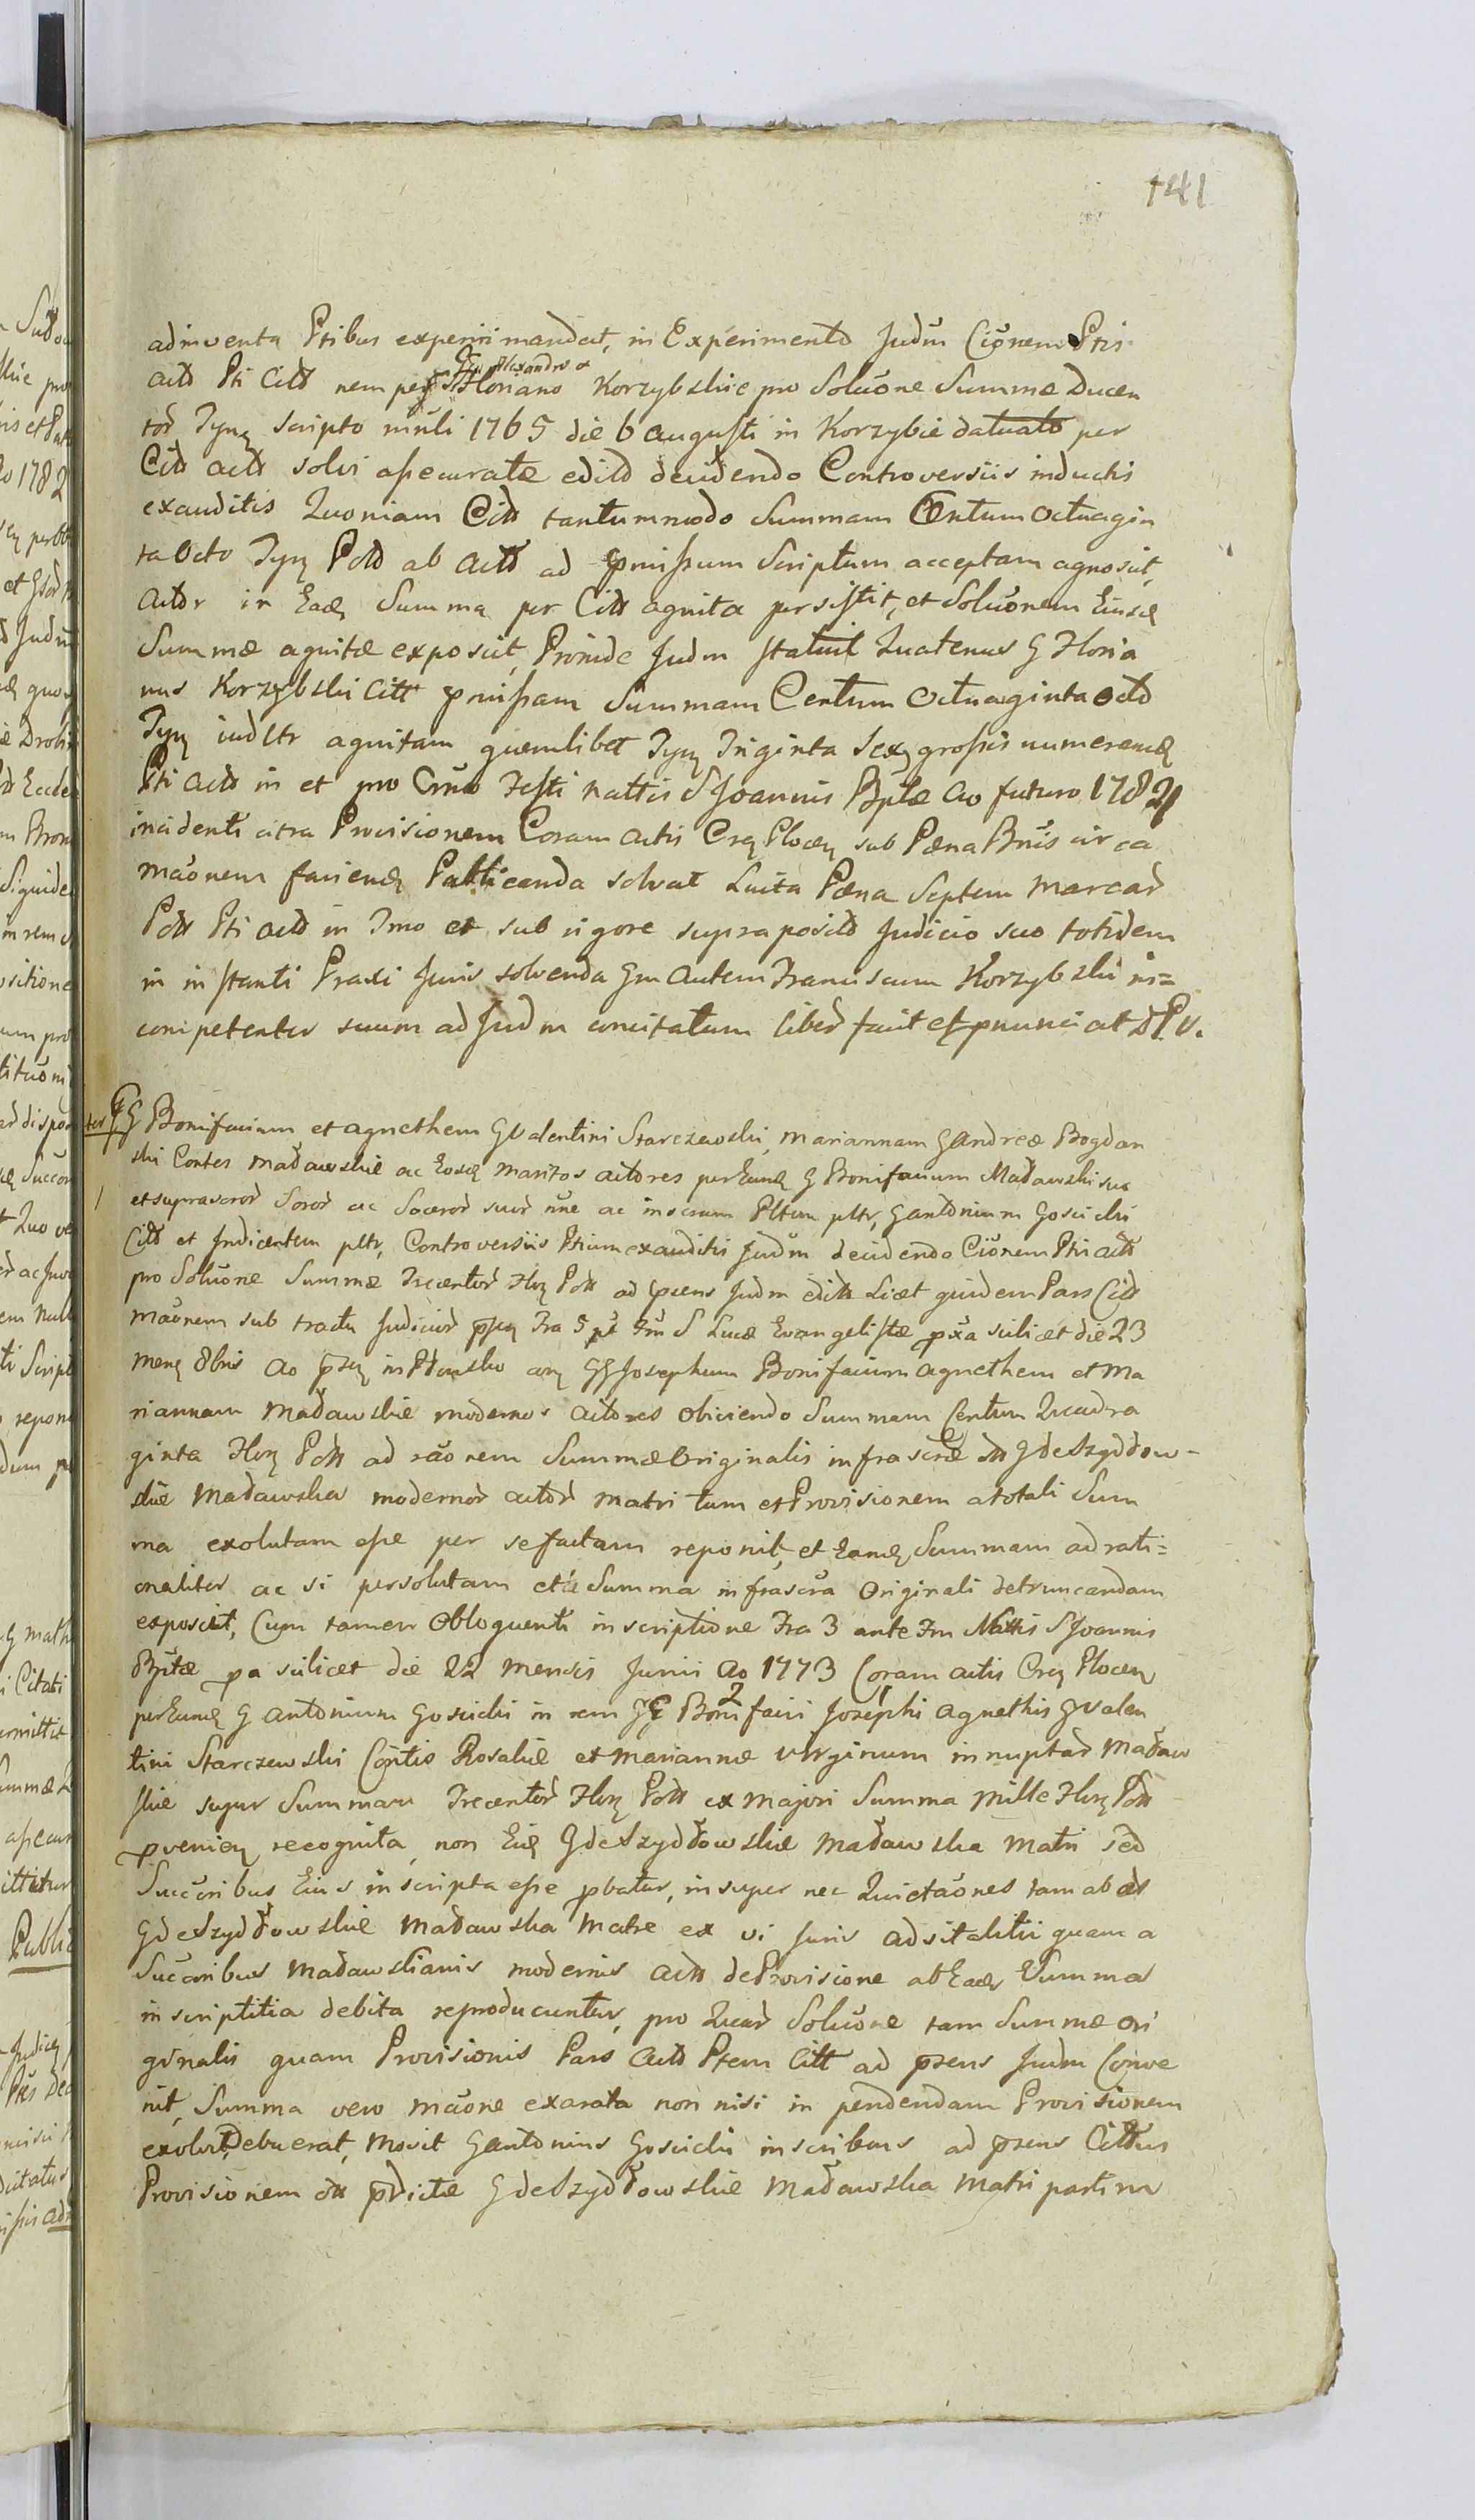 141
adinventa Ptibus experiri mandat, in Experimento Judm Cionem Ptis
Acto Pti Cito nempe G Floriano Korzybskie pro Soluone Summæ Ducen
GG Alexandro et
tor Tynf scripto mnli 1765 die 6 Augusti in Korzybie datuato per
Citt Actt solvi assecuratæ edito decidendo Controversiis inductis
exauditis Quoniam Citt tantummodo Summam Centum Octuagin
ta Octo Tynf Poll ab Actt ad pmissum Scriptum acceptam agnoscit,
Actor in Eadem Summa per Citt agnita persistit, et Soluonem Eiusd
Summæ agnitæ exposcit, Proinde Judm statuit Quatenus G Floria
nus Korzybski Citt pmissam Summam Centum Octuaginta octo
Tynf judltr agnitam quemlibet Tynf Triginta sex grossis numerand
Pti Acto in et pro Crno Festi Nattis S Joannis Bptæ Ao futuro 1782
incidenti citra Provisionem Coram Actis Cren Plocen sub Pæna Bnis circa
maonem faciend Publicanda solvat Luita Pæna Septem Marcar
Poll Pti Acto in Tmo et sub rigore supraposito Judicio suo totidem
in instanti Praxi Juris solvenda Gm autem Franciscum Korzybski in=
competenter suum ad Judm concitatum liber facit et pnunciat DPV.
ter GG Bonifacium et Agnethem G Valentini Starczewski, Mariannam G Andreæ Bogdan
ski Contes Madawskie ac Eosd Maritos Actores per Eund G Bonifacium Madawski suo
et suprascror Soror ac Soceror suor nne ac in rerum Pltem pltr, G Antonium Goscicki
Citt et Indicentem pltr, Controversiis Ptium exauditis Judm decidendo Cionem Pti Actt
pro Soluone Summæ Trecentor Flor Poll ad præns Judm editt Licet quidem Pars Citt
Maonem sub tractu Judicior psen Fra 5 pt Fm S Lucæ Evangelistæ pxa scilicet die 23
Mens 8bris Ao psen in Płonsko con GG Josephum Bonifacium Agnethem et Ma
riannam Madawskie modernos Actores Obiiciendo Summam Centum Quadra
ginta Flor Poll ad raonem Summæ Originalis infrascræ olt G de Szydłow-
skie Madawska modernor Actor Matri tum et Provisionem a totali Sum
ma exolutam esse per se factam reponit, et Eand Summam ad rati=
onaliter ac si persolutam et a Summa infrascra Originali detruncandam
exposcit, Cum tamen Obloquenti inscriptione Fra 3 ante Fm Nattis S Joannis
Bptæ pa scilicet die 22 Mensis Junii Ao 1773 Coram Actis Cren Plocen
per Eund G Antonium Goscicki in rem GG Bonifacii Josephi Agnethis G Valen
2
tini Starczewski Contis Rosaliæ et Mariannæ Virginum innuptar Madaw
skie super Summam Trecentor Flor Poll ex majori Summa Mille Flor Poll
pvenien recognita, non Eid G de Szydłowskie Madawska Matri sed
Succoribus Eius inscripta esse pbatur, insuper nec Quietaones tam ab olt
G de Szydłowskie Madawska Matre ex vi Juris advitalitii quam a
Succoribus Madawskianis modernis Actt de Provisione ab Eadem Summa
inscriptitia debita reproducuntur, pro Quar Soluone tam Summæ ori
ginalis quam Provisionis Pars Acto Ptem Citt ad præns Judm Conve
nit, Summa vero maone exarata non nisi in pendendam Provisionem
exolvi Debuerat, Movit G Antonius Goscicki inscribens ad præns Cittus
Provisionem olt prdictæ G de Szydłowskie Madawska Matri partim